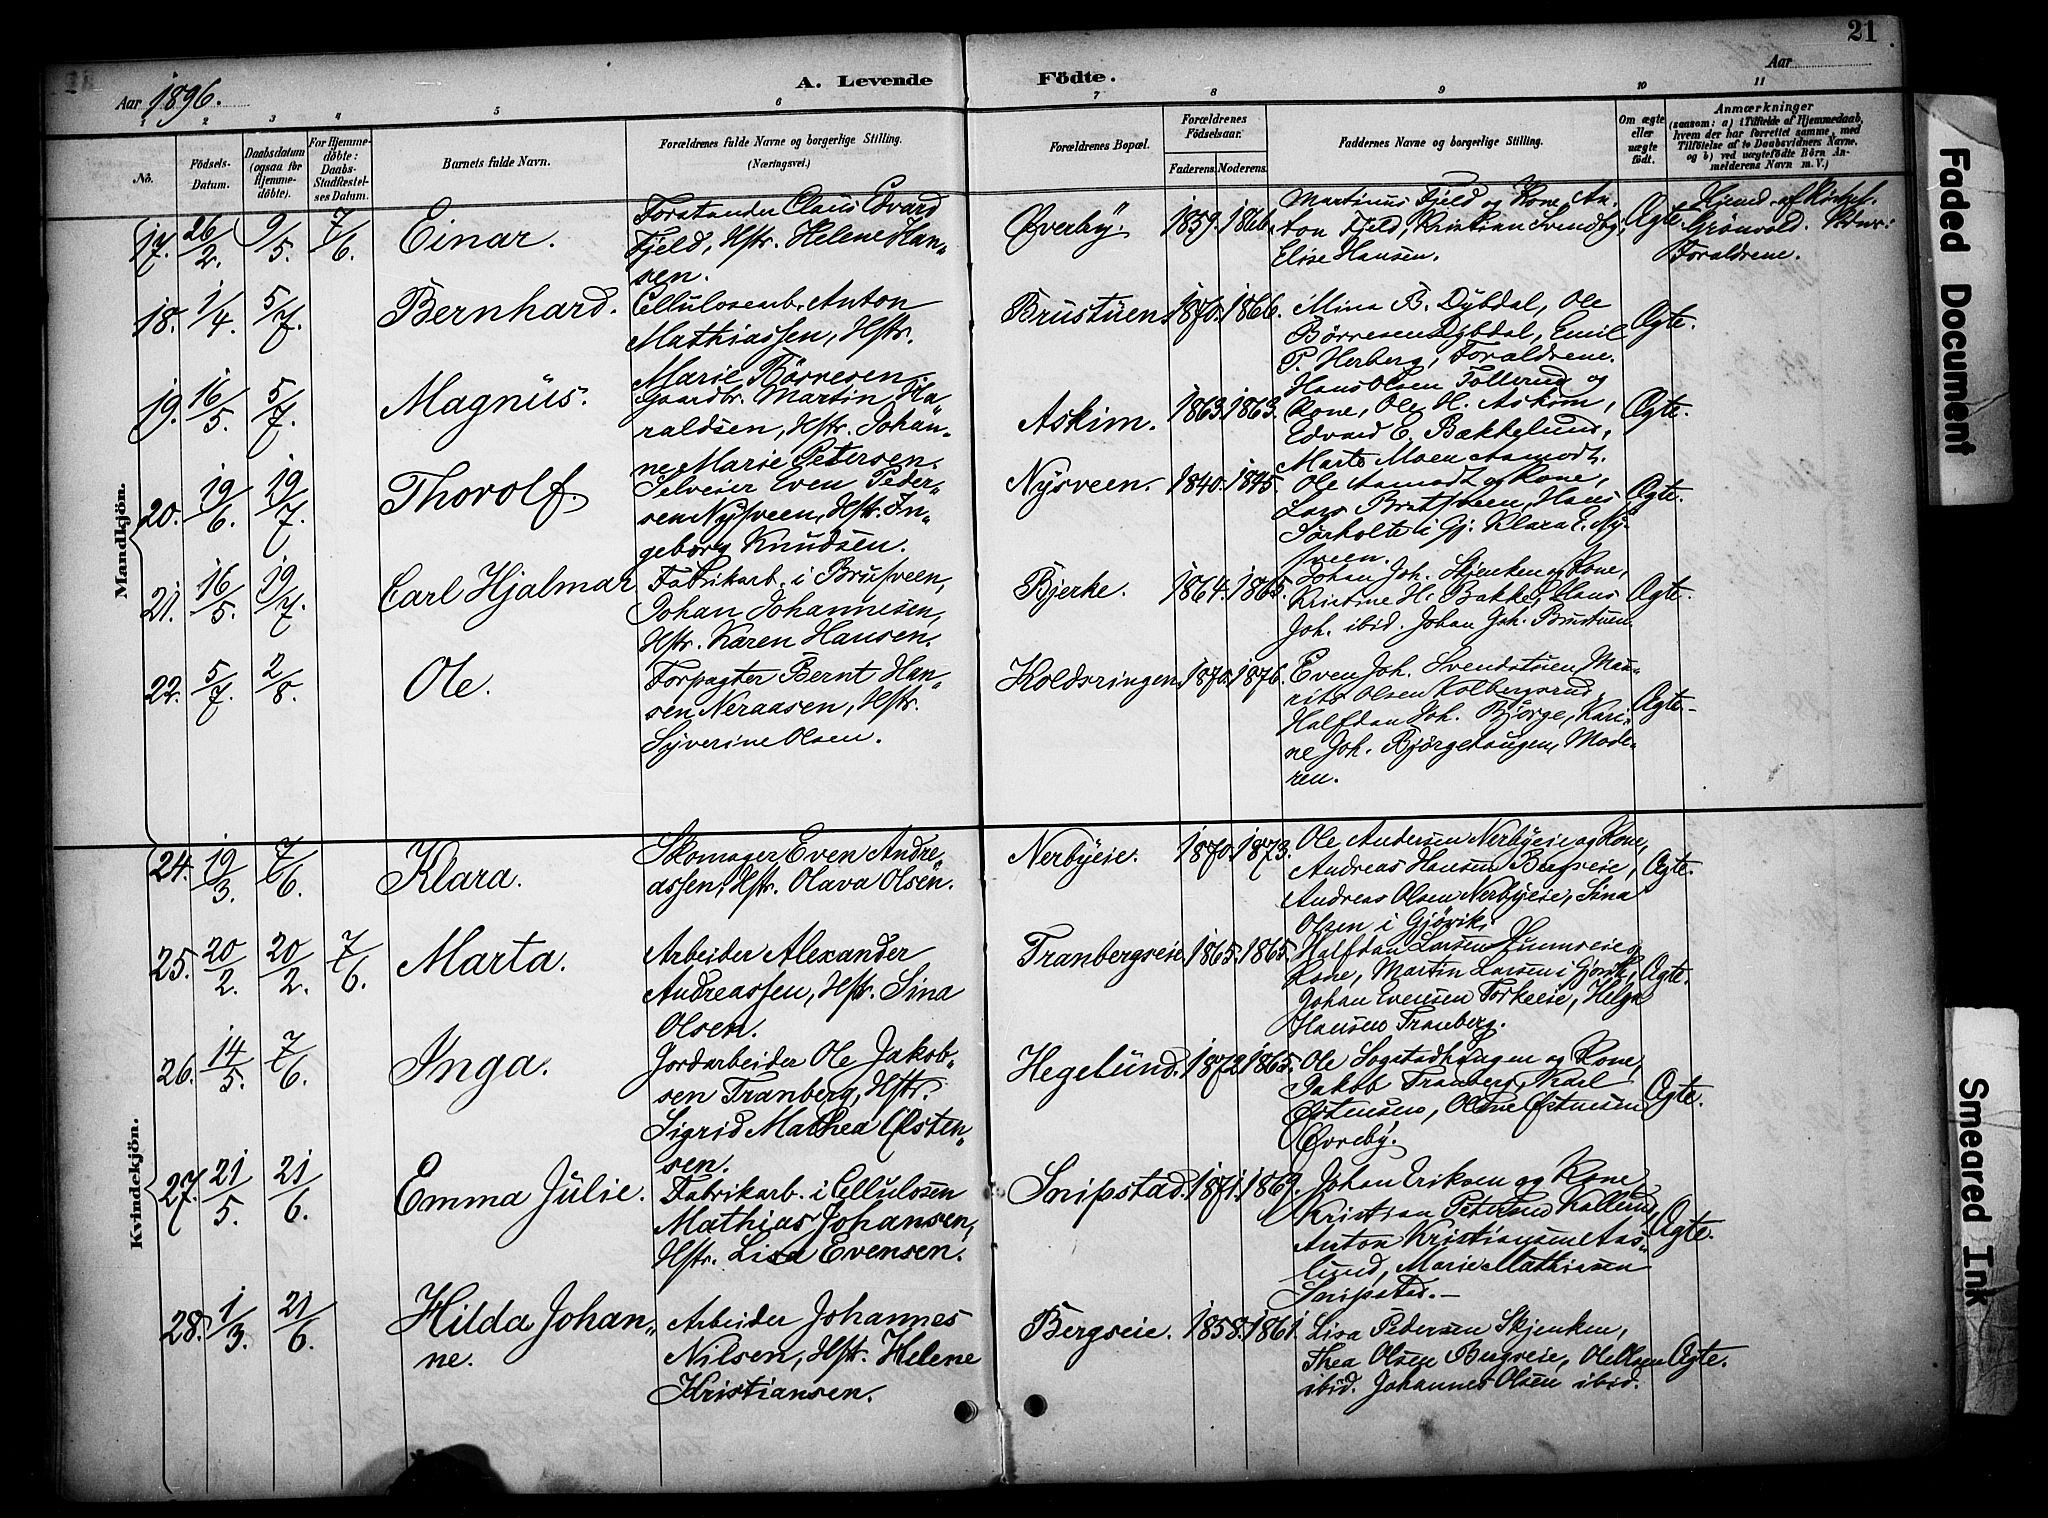 21
Aar 1896.
A. Levende Födte.
Aar
1 2 3 4 5 6 7 8 9 10 11
No.
Födsels-Datum.
Daabsdatum (ogsaa for Hjemmedöbte).
For Hjemmedöbte: Daabs-Stadfæstelses Datum.
Barnets fulde Navn.
Forældrenes fulde Navne og borgerlige Stilling. (Næringsvei.)
Forældrenes Bopæl.
Forældrenes Födselsaar.
Faderens. Moderens.
Faddernes Navne og borgerlige Stilling.
Om ægte eller uægte födt.
Anmærkninger
(saasom: a) i Tilfælde af Hjemmedaab, hvem der har forrettet samme, med Tilföielse af to Daabsvidners Navne, og b) ved uægtefödte Börn Anmelderens Navn m. V.)
Mandkjön.
17. 26/2. 9/5. 7/6. Einar.
Forstander Claus Edvard
Fjeld, Hstr. Helene Han-
sen.
Øverby. 1859. 1866.
Martinus Fjeld og Kone, An-
ton Fjeld, Kristian Svendby,
Elise Hansen.
Ægte.
Grönvold.
Foraldrene.
18. 1/4. 5/7. Bernhard.
Cellulosearb. Anton
Mathiassen, Hstr.
Marie Börresen.
Brustuen. 1870. 1866.
Mina B. Dybdal, Ole
Börresen Dybdal, Emil
P. Herberg, Foraldrene.
Ægte.
19. 16/5. 5/7. Magnus.
Gaardbr. Martin Ha-
raldsen, Hstr. Johan-
ne Marie Petersen.
Askim. 1863. 1863.
Hans Olsen Tollerud og
Kone, Ole H. Askim,
Edvard E. Bækkelund,
Marte Moen Aamodt.
Ægte.
20. 19/6. 19/7. Thorolf.
Selveier Even Peder-
sen Nysveen, Hstr. In-
geborg Knudsen.
Nysveen. 1840. 1845.
Ole Aamodt og Kone,
Lars Bratsveen, Hans
i Gj. Klara E. Ny-
sveen.
Ægte.
21. 16/5. 19/7. Carl Hjalmar
Fabrikarb. i Brusveen,
Johan Johannesen,
Hstr. Karen Hansen.
Bjerke. 1864. 1865.
Johan Joh. Skjenken og Kone,
Kristine H. Bakke, Claus
Joh. ibid. Johan Joh. Brustuen.
Ægte.
22. 5/7. 2/8. Ole.
Forpagter Bernt Han-
sen Neraasen, Hstr.
Syverine Olsen.
Koldsringen. 1870. 1876.
Even Joh. Svendstuen, Mau-
ritz Olsen Kolbergsrud,
Halfdan Joh. Björge, Kari-
ne Joh. Björgehaugen, Mode-
ren.
Ægte.
Kvindekjön.
24. 19/3. 7/6. Klara.
Skomager Even Andre-
assen, Hstr. Olava Olsen.
Nerbyeie. 1870. 1873.
Ole Andersen Nerbyeie og Kone,
Andreas Hansen Bergseie,
Andreas Olsen Nerbyeie, Sina
Olsen i Gjövik.
Ægte.
25. 20/2. 20/2. 7/6. Marta.
Arbeider Alexander
Andreassen, Hstr. Sina
Olsen.
Tranbergseie 1865. 1865.
Halfdan Larsen Hunnseie og
Kone, Martin Larsen i Gjövik,
Johan Evensen Torkeeie, Helga
Hansen Tranberg.
Ægte.
26. 14/5. 7/6. Inga.
Jordarbeider Ole Jakob-
sen Tranberg, Hstr.
Sigrid Mathea Østen-
sen.
Hegelund. 1872. 1865.
Ole Sogstadhaugen og Kone,
Jakob Tranberg, Karl
Østensen, Oline Østensen
Øvreby.
Ægte.
27. 21/5. 21/6. Emma Julie.
Fabrikarb. i Cellulosen
Mathias Johansen,
Hstr. Lisa Evensen.
Snipstad. 1871. 1869.
Johan Eriksen og Kone,
Kristian Petersen Kallund,
Anton Kristiansen Aas-
lund, Marie Mathisen
Snipstad.
Ægte.
28. 1/3. 21/6. Hilda Johan-
ne.
Arbeider Johannes
Nilsen, Hstr. Helene
Kristiansen.
Bergseie. 1858. 1861.
Lisa Pedersen Skjenken,
Thea Olsen Bergseie, Ole Olsen
ibid. Johannes Olsen ibid.
Ægte.
Faded Document
Smeared Ink